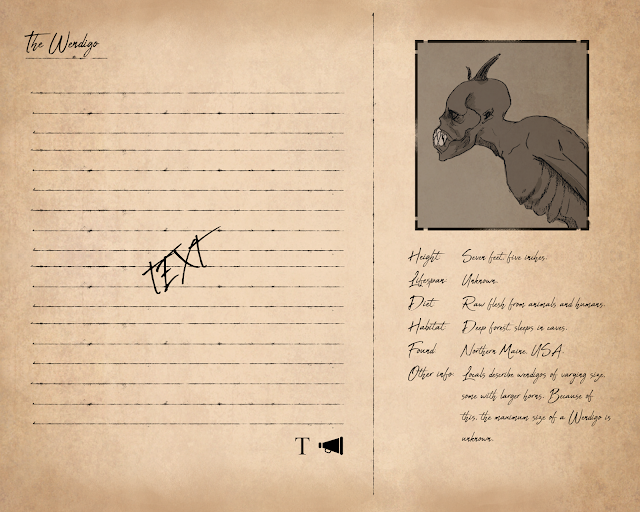 The Wendigo
TEXT
T
Height Seven feet, five inches.
Lifespan Unknown.
Diet Raw flesh from animals and humans.
Habitat Deep forest, sleeps in caves.
Found Northern Maine, USA.
Other info Locals describe wendigos of varying size,
some with larger horns. Because of
this, the maximum size of a Wendigo is
unknown.